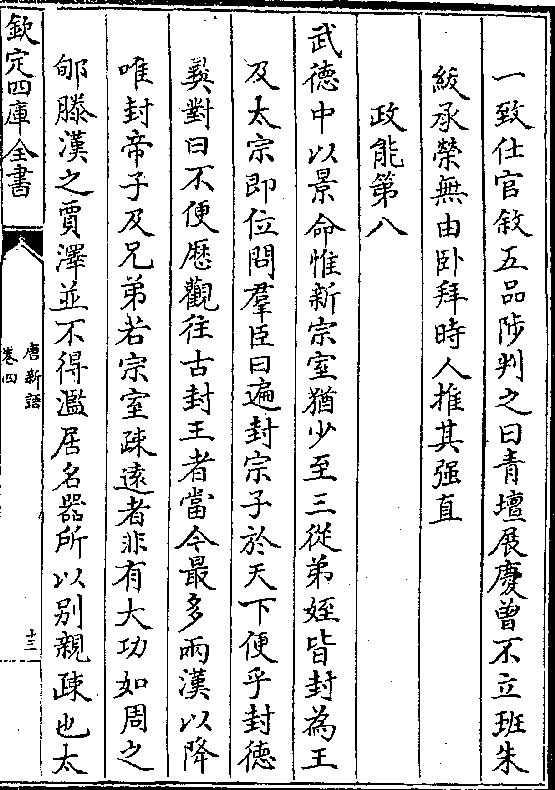 一致仕官敘五品陟判之曰青壇展慶曽不立班朱
紱承榮無由卧拜時人推其强直
政能第八
武德中以景命惟新宗室猶少至三從弟姪皆封為王
及太宗即位問羣臣曰遍封宗子於天下便乎封德
彛對曰不便歴觀往古封王者當今最多兩漢以降
唯封帝子及兄弟若宗室疎遠者非有大功如周之
郇滕漢之賈澤並不得濫居名器所以别親疎也太
欽定四庫全書
唐新語
卷四
十三